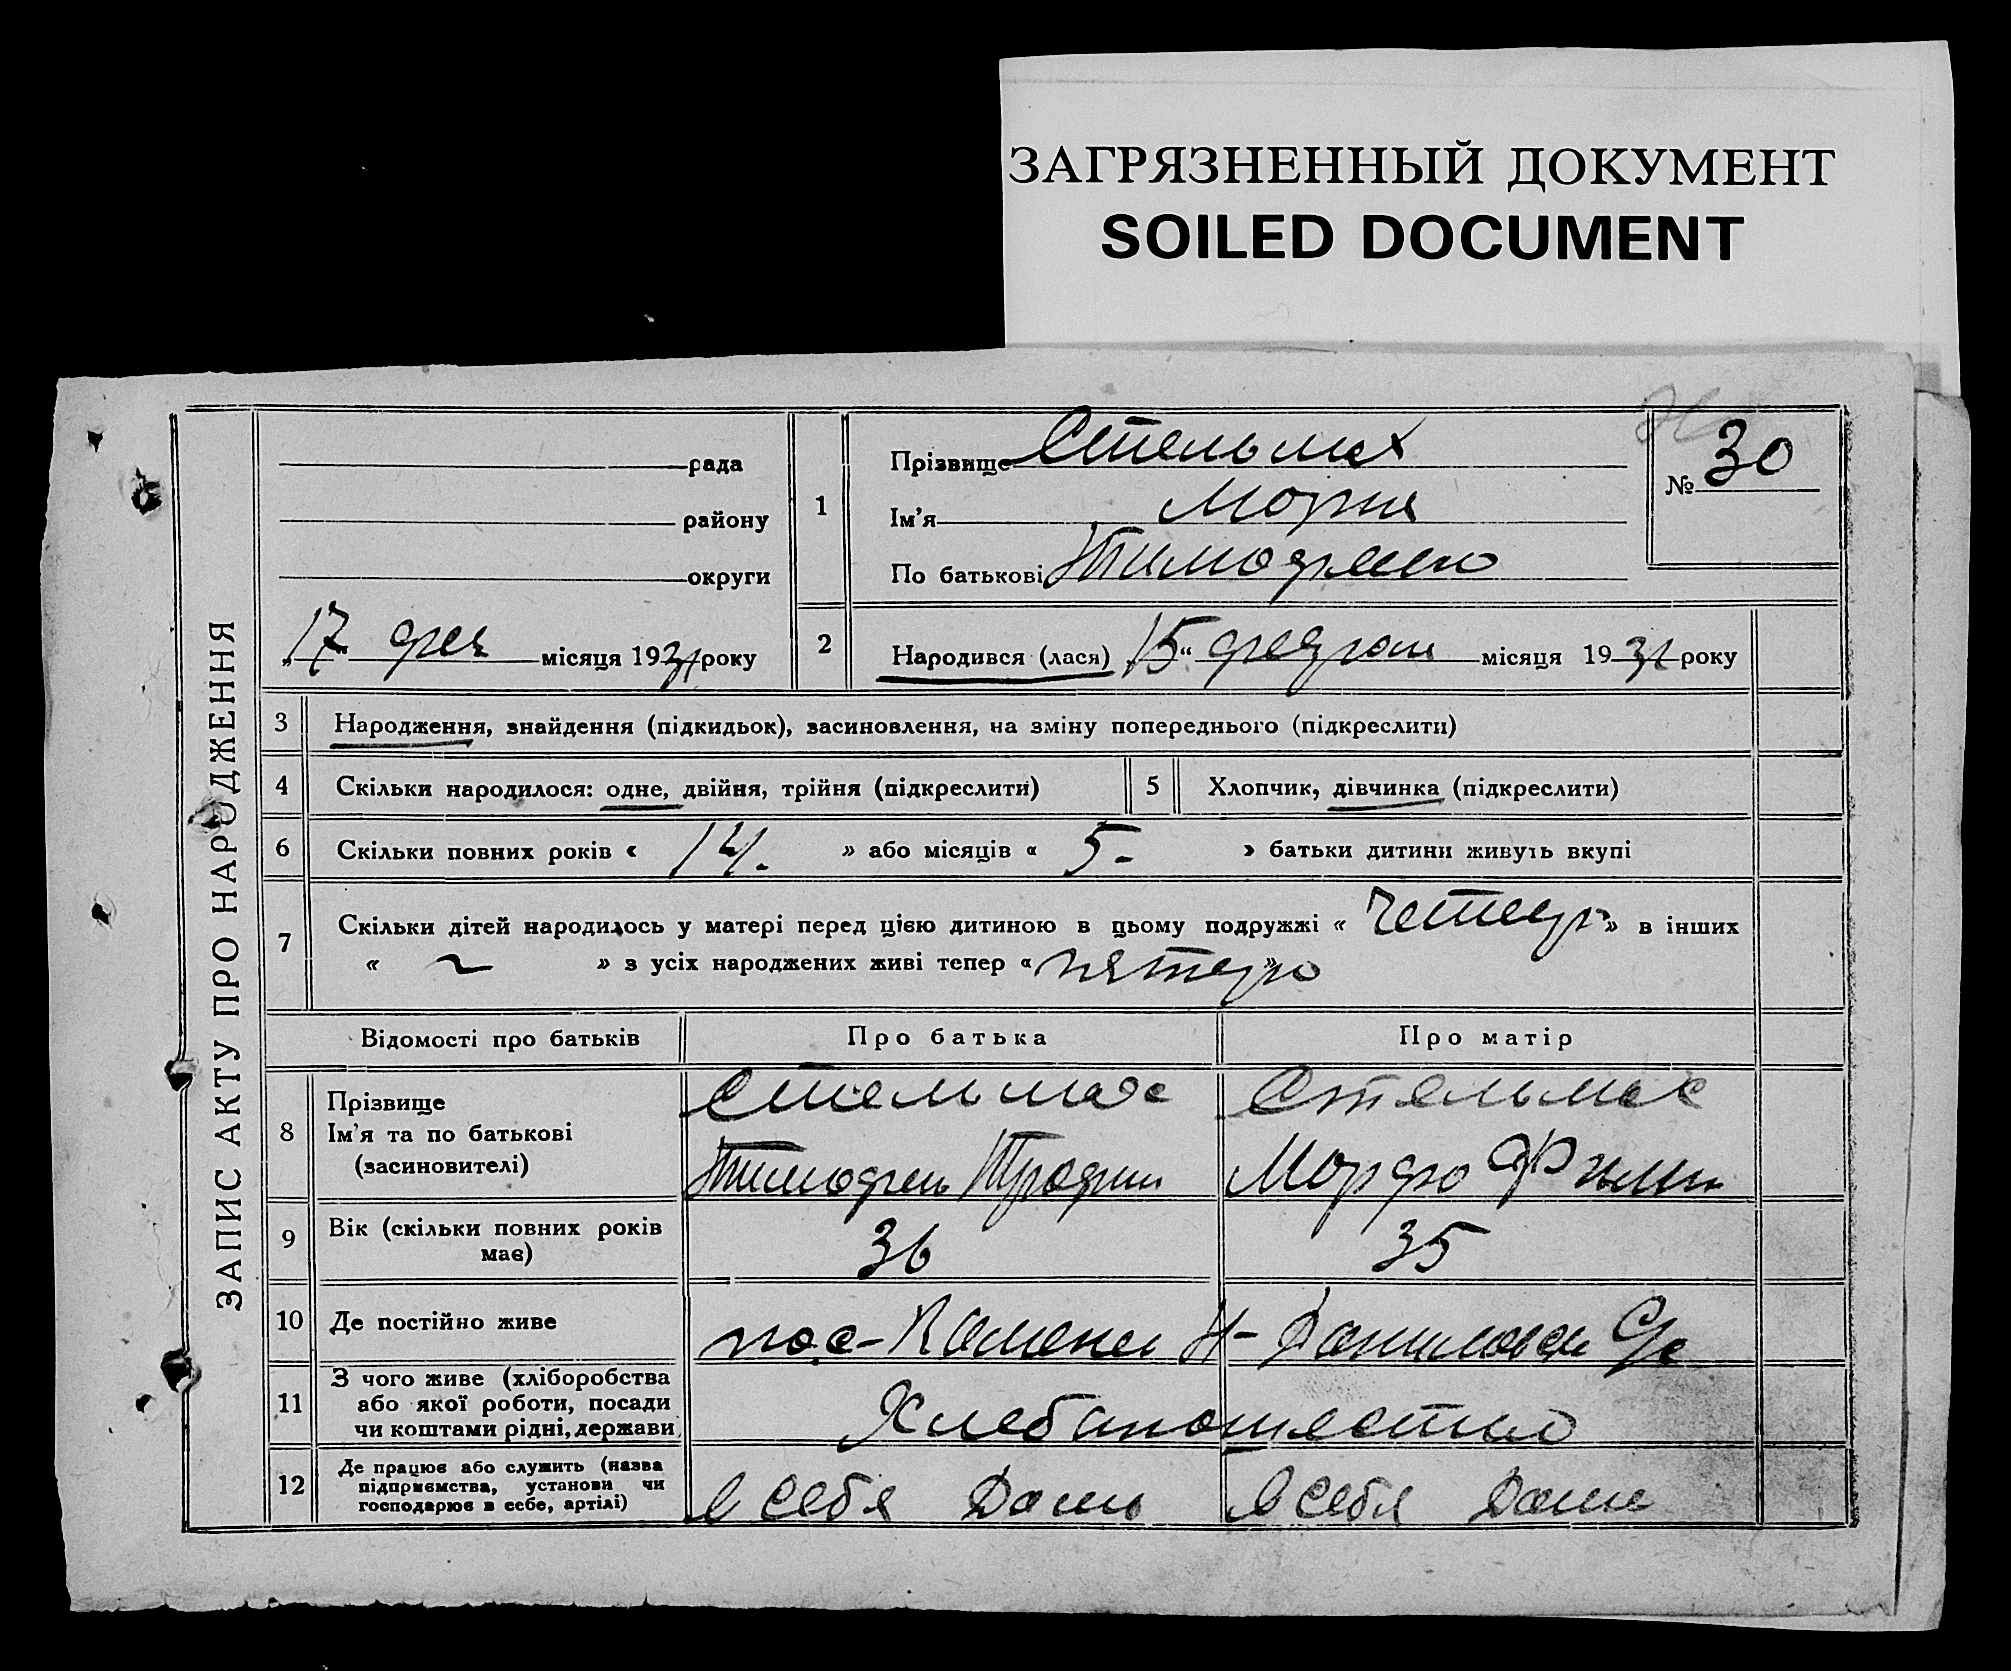 ЗАГРЯЗНЕННЫЙ ДОКУМЕНТ
SOILED DOCUMENT
ЗАПИС АКТУ ПРО НАРОДЖЕННЯ
рада
району
округи
„17“ фев місяця 1931 року
1 Прізвище Стельмах
Ім'я Мория
По батькові Тимофеево
№ 30
2 Народився (лася) „15“ феврал місяця 1931 року
3 Народження, знайдення (підкидьок), засиновлення, на зміну попереднього (підкреслити)
4 Скільки народилося: одне, двійня, трійня (підкреслити)
5 Хлопчик, дівчинка (підкреслити)
6 Скільки повних років « 14. » або місяців « 5- » батьки дитини живуть вкупі
7 Скільки дітей народилось у матері перед цією дитиною в цьому подружжі « четвер » в інших
« ~ » з усіх народжених живі тепер « пятеро »
Відомості про батьків Про батька Про матір
8 Прізвище
Ім'я та по батькові
(засиновителі)
Стельмах
Тимофей Трофим
Стельмах
Морфо Филип
9 Вік (скільки повних років
має)
36 35
10 Де постійно живе
пос-Камены Н-
11 З чого живе (хліборобства
або якої роботи, посади
чи коштами рідні, держави
Хлебапошество
12 Де працює або служить (назва
підприємства, установи чи
господарює в себе, артілі)
в себя Доми в себя Доми